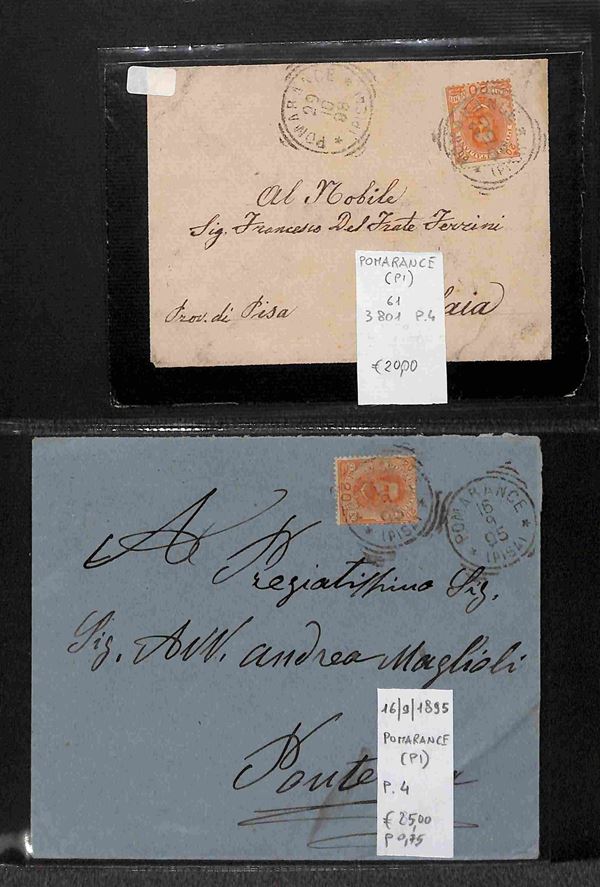 POMARANCE
29
10
98
* (PISA) *
POMARANCE
(PISA)
Al Nobile
Sig. Francesco Del Frate Ferrini
Prov. di Pisa
aia
POMARANCE
(PI)
61
3801 P.4
€ 20,00
POMARANCE
16
9
95
* (PISA) *
(PISA)
Al
Pregiatissimo Sig.
Sig. Avv. Andrea Maglioli
Ponte
16/9/1895
POMARANCE
(PI)
P. 4
€ 25,00
P 0,75